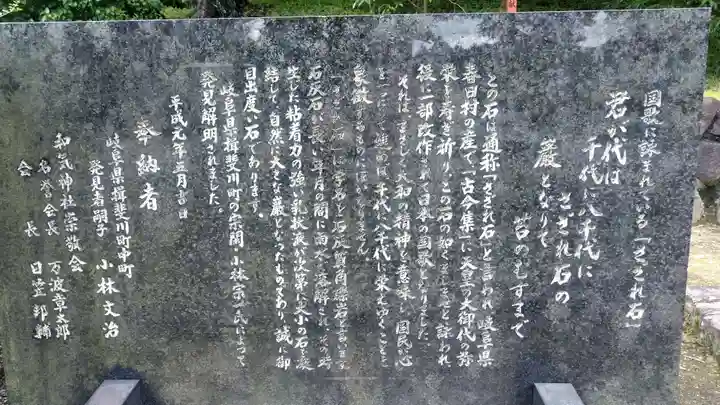 国歌に詠まれている「さざれ石」
君が代は
千代に八千代に
さざれ石の
巌となりて
苔のむすまで
この石は通称「さざれ石」と言われ、岐阜県
春日村の産で「古今集」に天皇の大御代の弥
栄を寿ぎ祈り、この石の如くましませと詠われ、
後に一部改作されて日本の国歌となりました。
それはまさしく大和の精神を意味し、国民が心
を一つにし強固に、千代に八千代に栄えゆくことを
象徴するものに他なりません。
「さざれ石」は学名を石灰質角礫岩と言います。
石灰石が長い年月の間に雨水で溶解され、その時
生じた粘着力の強い乳状液が次第に大小の石を凝
結して、自然に大きな巌となったものであり、誠に御
目出度い石であります。
岐阜県揖斐川町の宗閑・小林宗一氏によって
発見解明されました。
平成元年五月吉日
奉納者
岐阜県揖斐川町中町
発見者嗣子 小林文治
和気神社宗敬会
名誉会長 万波章太郎
会長 日笠邦輔